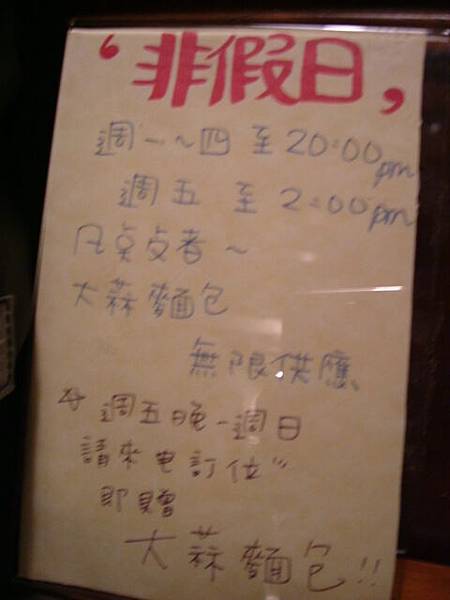 ‘非假日，
週一~四至20:00pm
週五至2:00pm
凡桌者~
大蒜麵包
無限供應
週五晚-週日
請來电訂位"
即贈
大蒜麵包!!